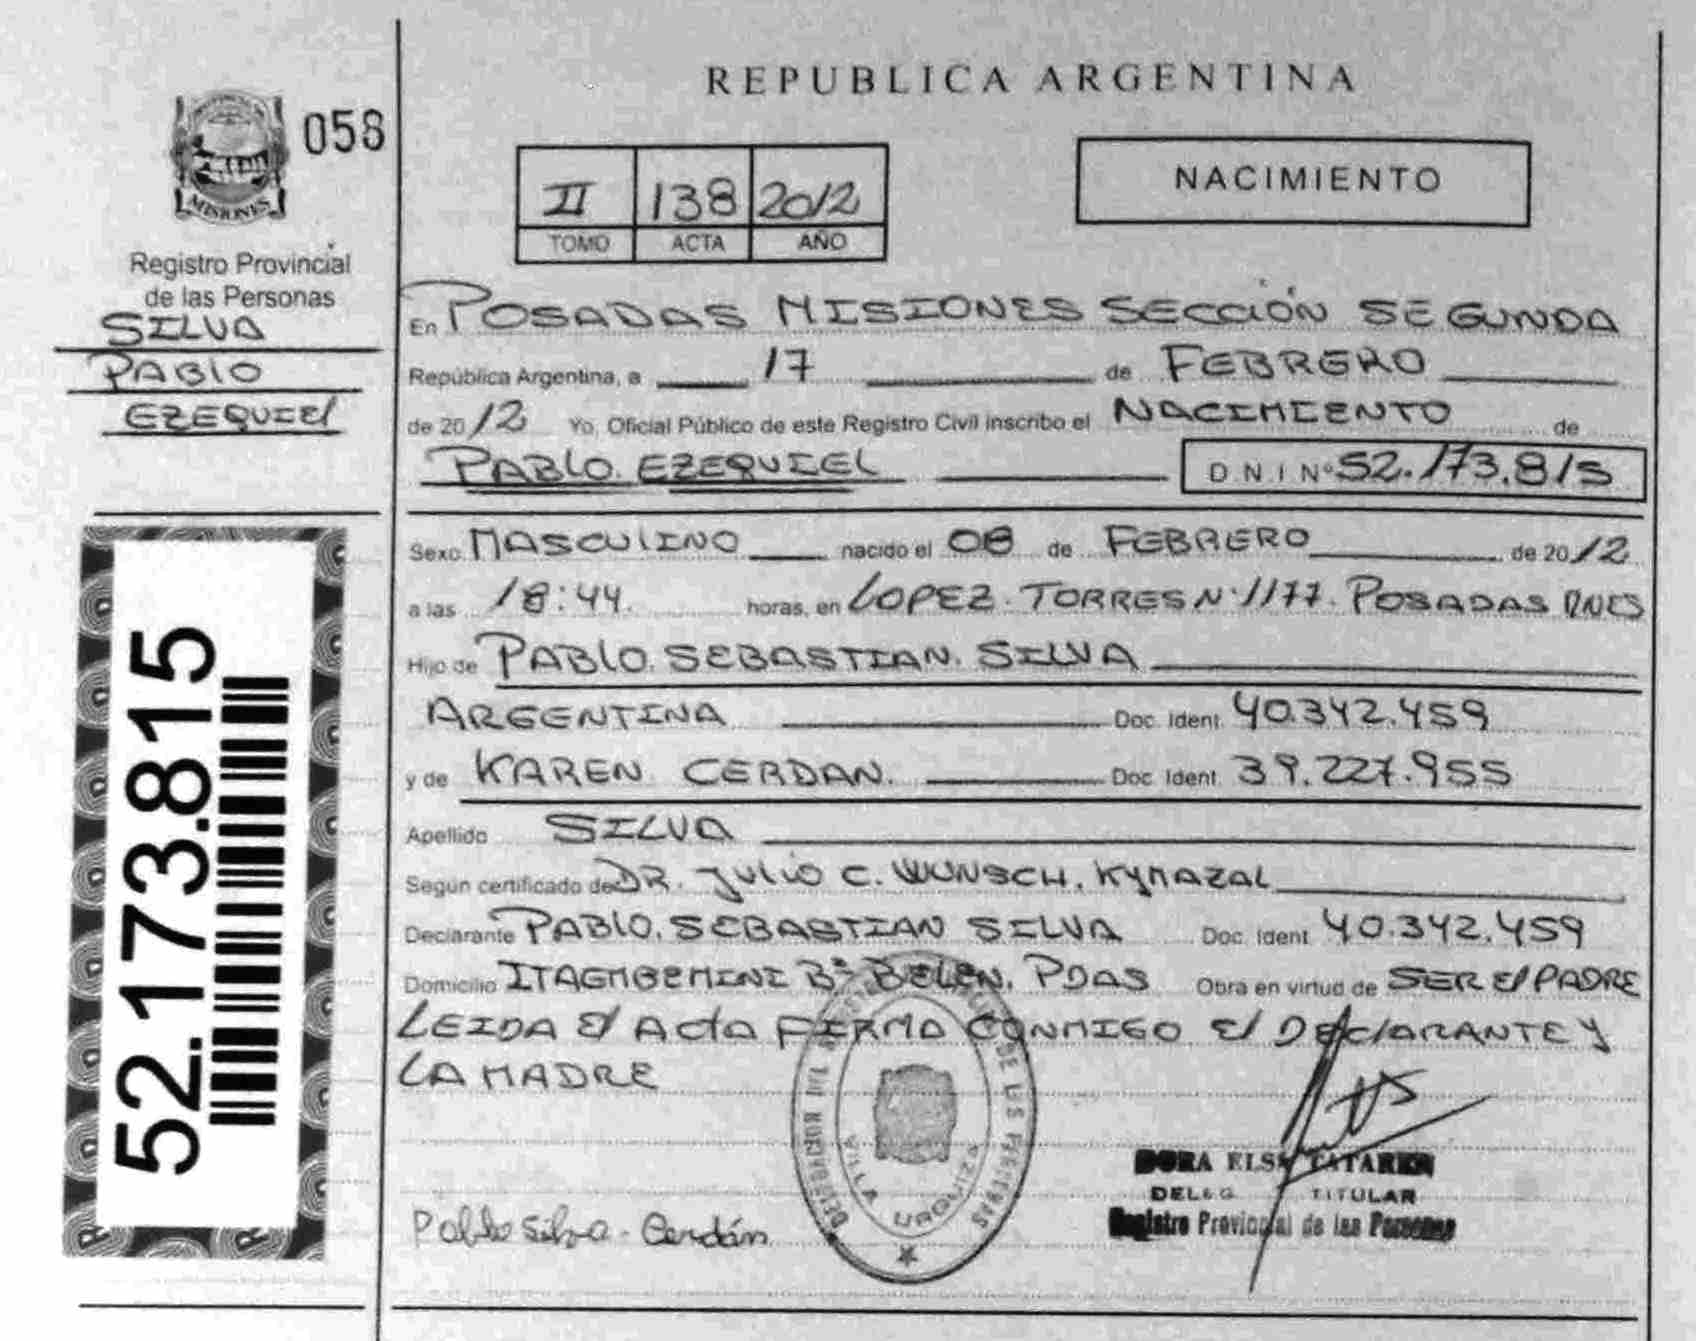 MISIONES
058
Registro Provincial
de las Personas
SILVA
PABLO
EZEQUIEL
52.173.815
REPUBLICA ARGENTINA
II 138 2012
TOMO ACTA AÑO
NACIMIENTO
En POSADAS MISIONES SECCIÓN SEGUNDA
República Argentina, a 17 de FEBRERO
de 2012 Yo, Oficial Público de este Registro Civil inscribo el NACIMIENTO de
PABLO. EZEQUIEL D N I Nº 52.173.815
Sexo MASCULINO nacido el 08 de FEBRERO de 2012
a las 18:44. horas, en LOPEZ. TORRES N·1177. POSADAS
Hijo de PABLO. SEBASTIAN. SILVA
ARGENTINA Doc. Ident. 40.342.459
y de KAREN CERDAN. Doc. Ident. 39.227.955
Apellido SILVA
Según certificado de DR. JULIO C. WUNSCH. KYMAZAL
Declarante PABLO. SEBASTIAN SILVA Doc. Ident. 40.342.459
Domicilio ITAEMBEMINI Bº BELEN. PDAS Obra en virtud de SER El PADRE
LEIDA El ActA FIRMA CONMIGO El DEClARANTE Y
LA MADRE
DE LAS PERSONAS
VILLA URQUIZA
DORA ELSA
TITULAR
Registro Provincial de las Personas
Pablo Silva - Cerdán